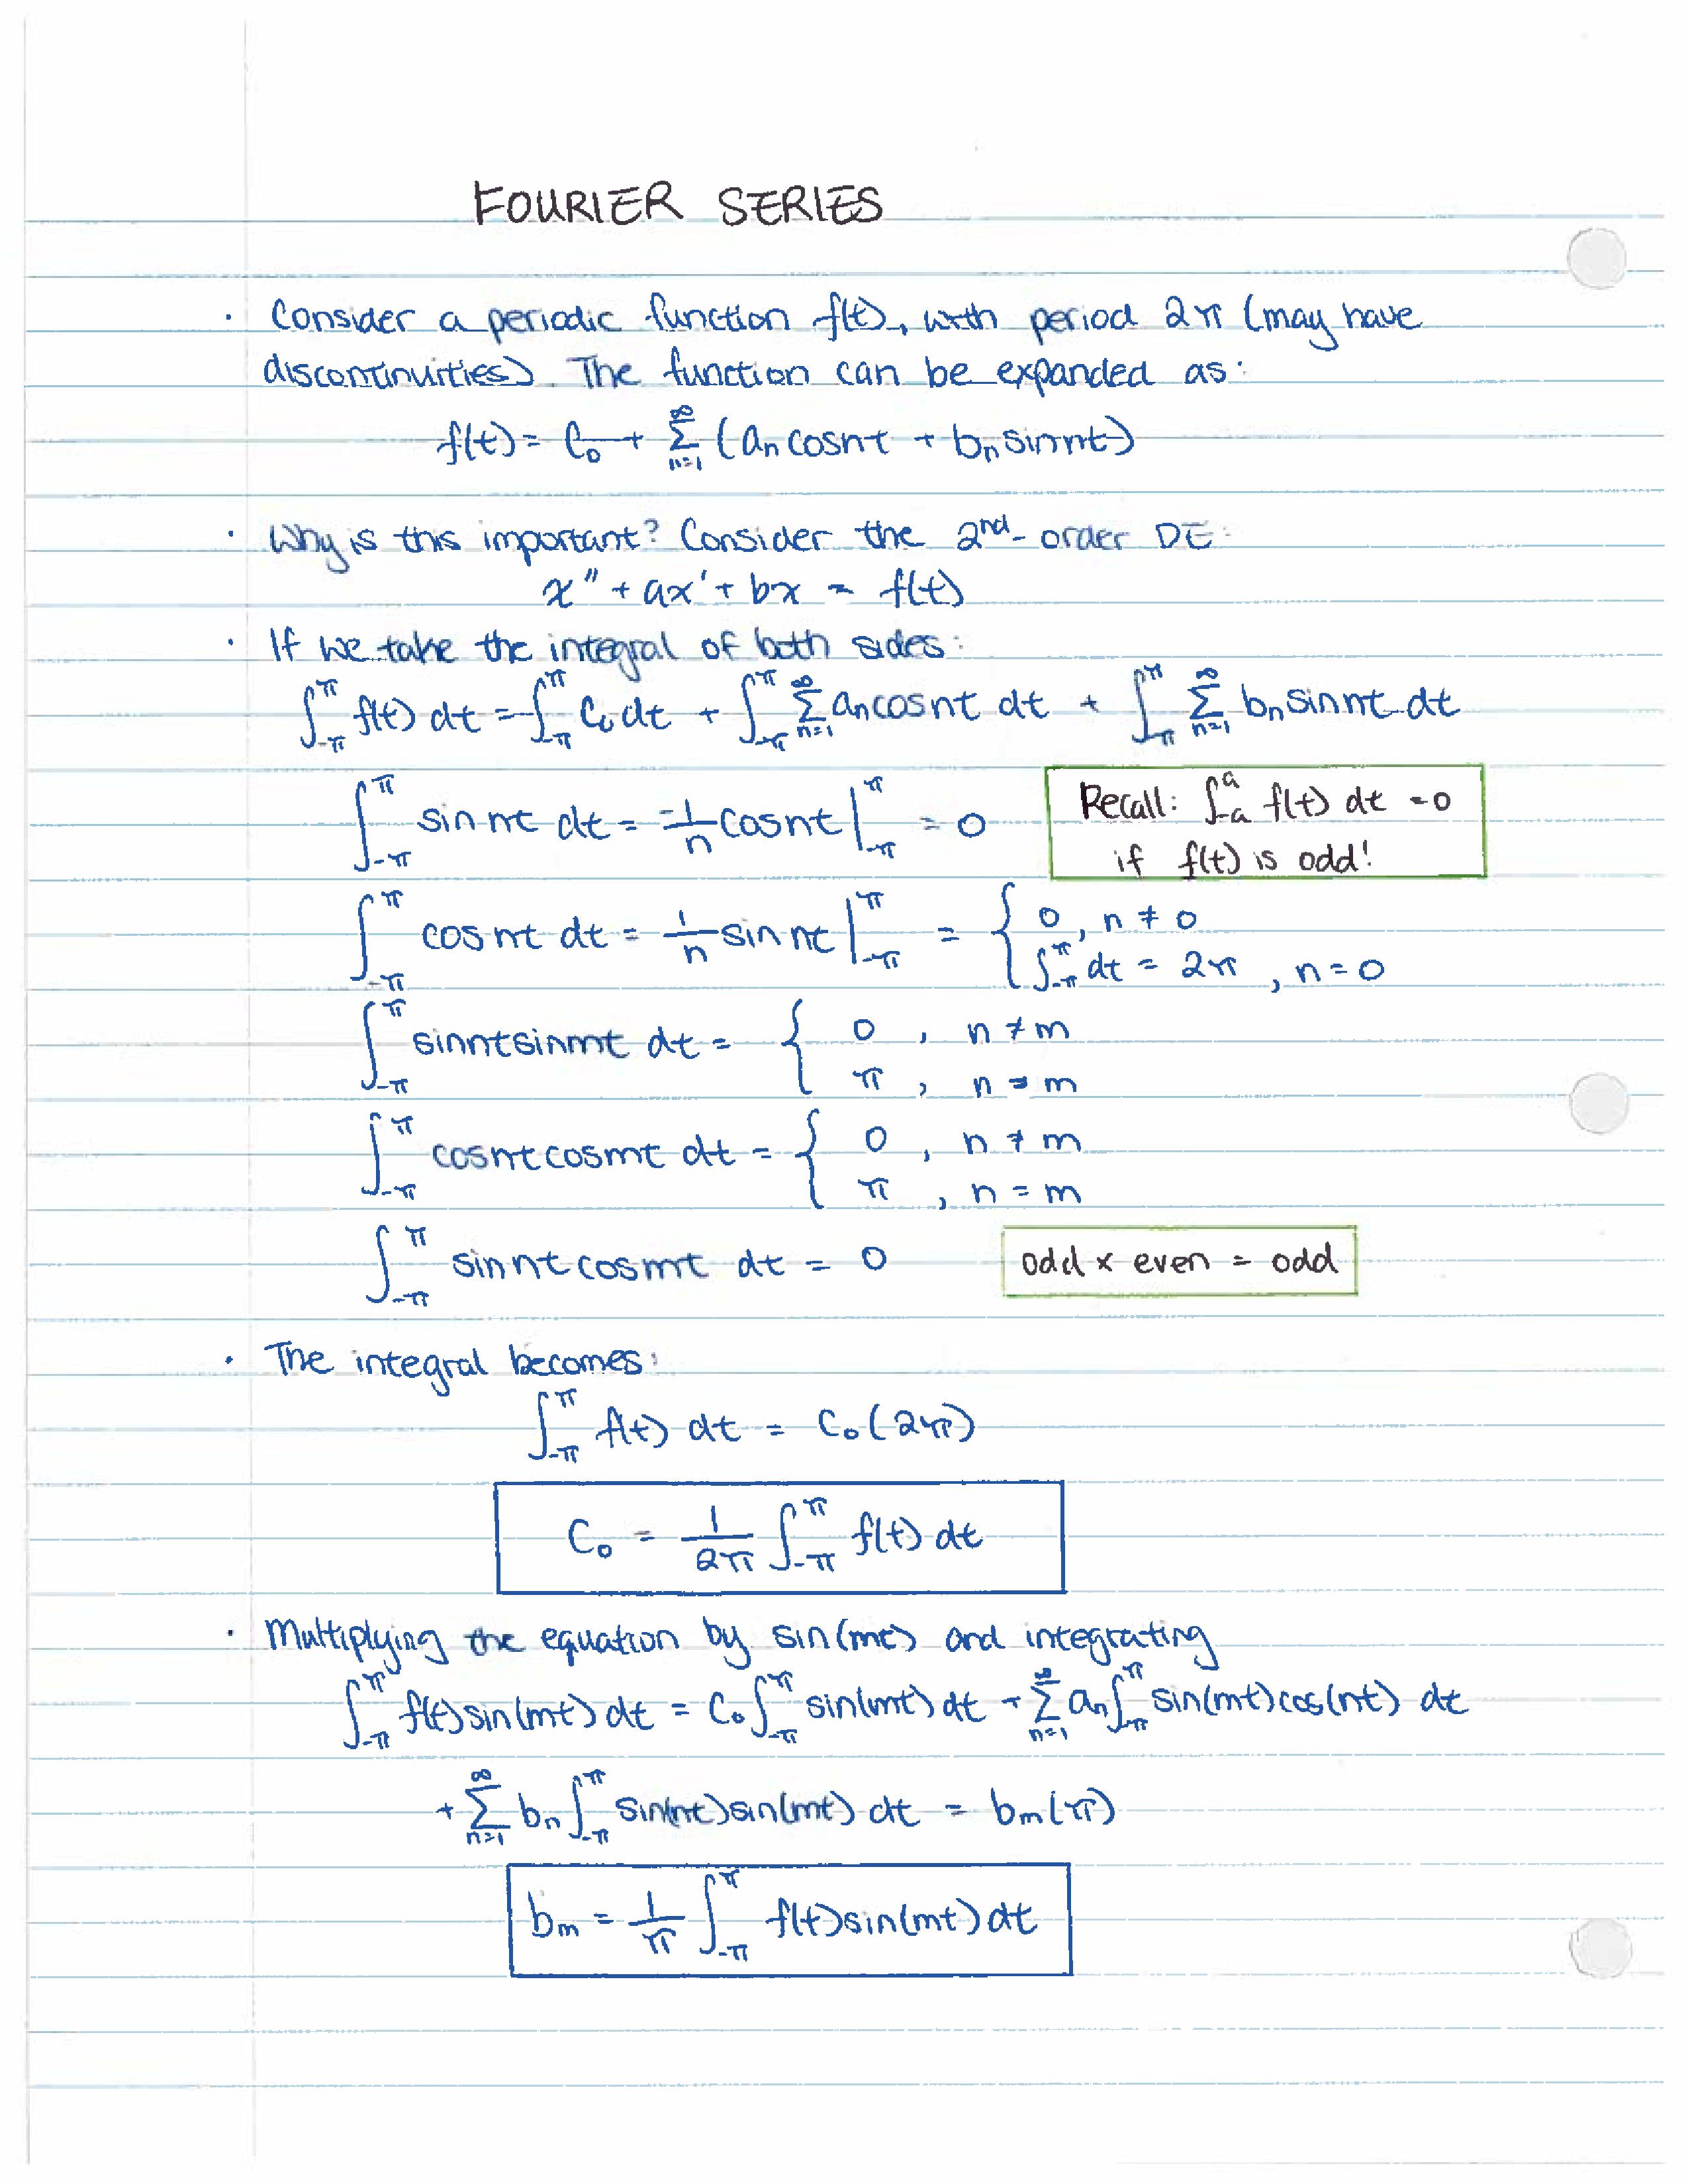 FOURIER SERIES
· Consider a periodic function f(t), with period 2π (may have
discontinuities). The function can be expanded as:
f(t) = C₀ + ∑_{n=1}^{∞} (aₙ cosnt + bₙ sinnt)
· Why is this important? Consider the 2nd-order DE:
x'' + ax' + bx = f(t)
· If we take the integral of both sides:
∫_{-π}^{π} f(t) dt = ∫_{-π}^{π} C₀ dt + ∫_{-π}^{π} ∑_{n=1}^{∞} aₙ cosnt dt + ∫_{-π}^{π} ∑_{n=1}^{∞} bₙ sinnt dt
∫_{-π}^{π} sinnt dt = -1/n cosnt |_{-π}^{π} = 0
Recall: ∫_{-a}^{a} f(t) dt = 0
if f(t) is odd!
∫_{-π}^{π} cosnt dt = 1/n sinnt |_{-π}^{π} = { 0, n ≠ 0
∫_{-π}^{π} dt = 2π, n = 0
∫_{-π}^{π} sinntsinmt dt = { 0, n ≠ m
π, n = m
∫_{-π}^{π} cosntcosmt dt = { 0, n ≠ m
π, n = m
∫_{-π}^{π} sinntcosmt dt = 0
odd × even = odd
· The integral becomes:
∫_{-π}^{π} f(t) dt = C₀(2π)
C₀ = 1/2π ∫_{-π}^{π} f(t) dt
· Multiplying the equation by sin(mt) and integrating
∫_{-π}^{π} f(t)sin(mt) dt = C₀ ∫_{-π}^{π} sin(mt) dt + ∑_{n=1}^{∞} aₙ ∫_{-π}^{π} sin(mt)cos(nt) dt
+ ∑_{n=1}^{∞} bₙ ∫_{-π}^{π} sin(nt)sin(mt) dt = bₘ(π)
bₘ = 1/π ∫_{-π}^{π} f(t)sin(mt) dt